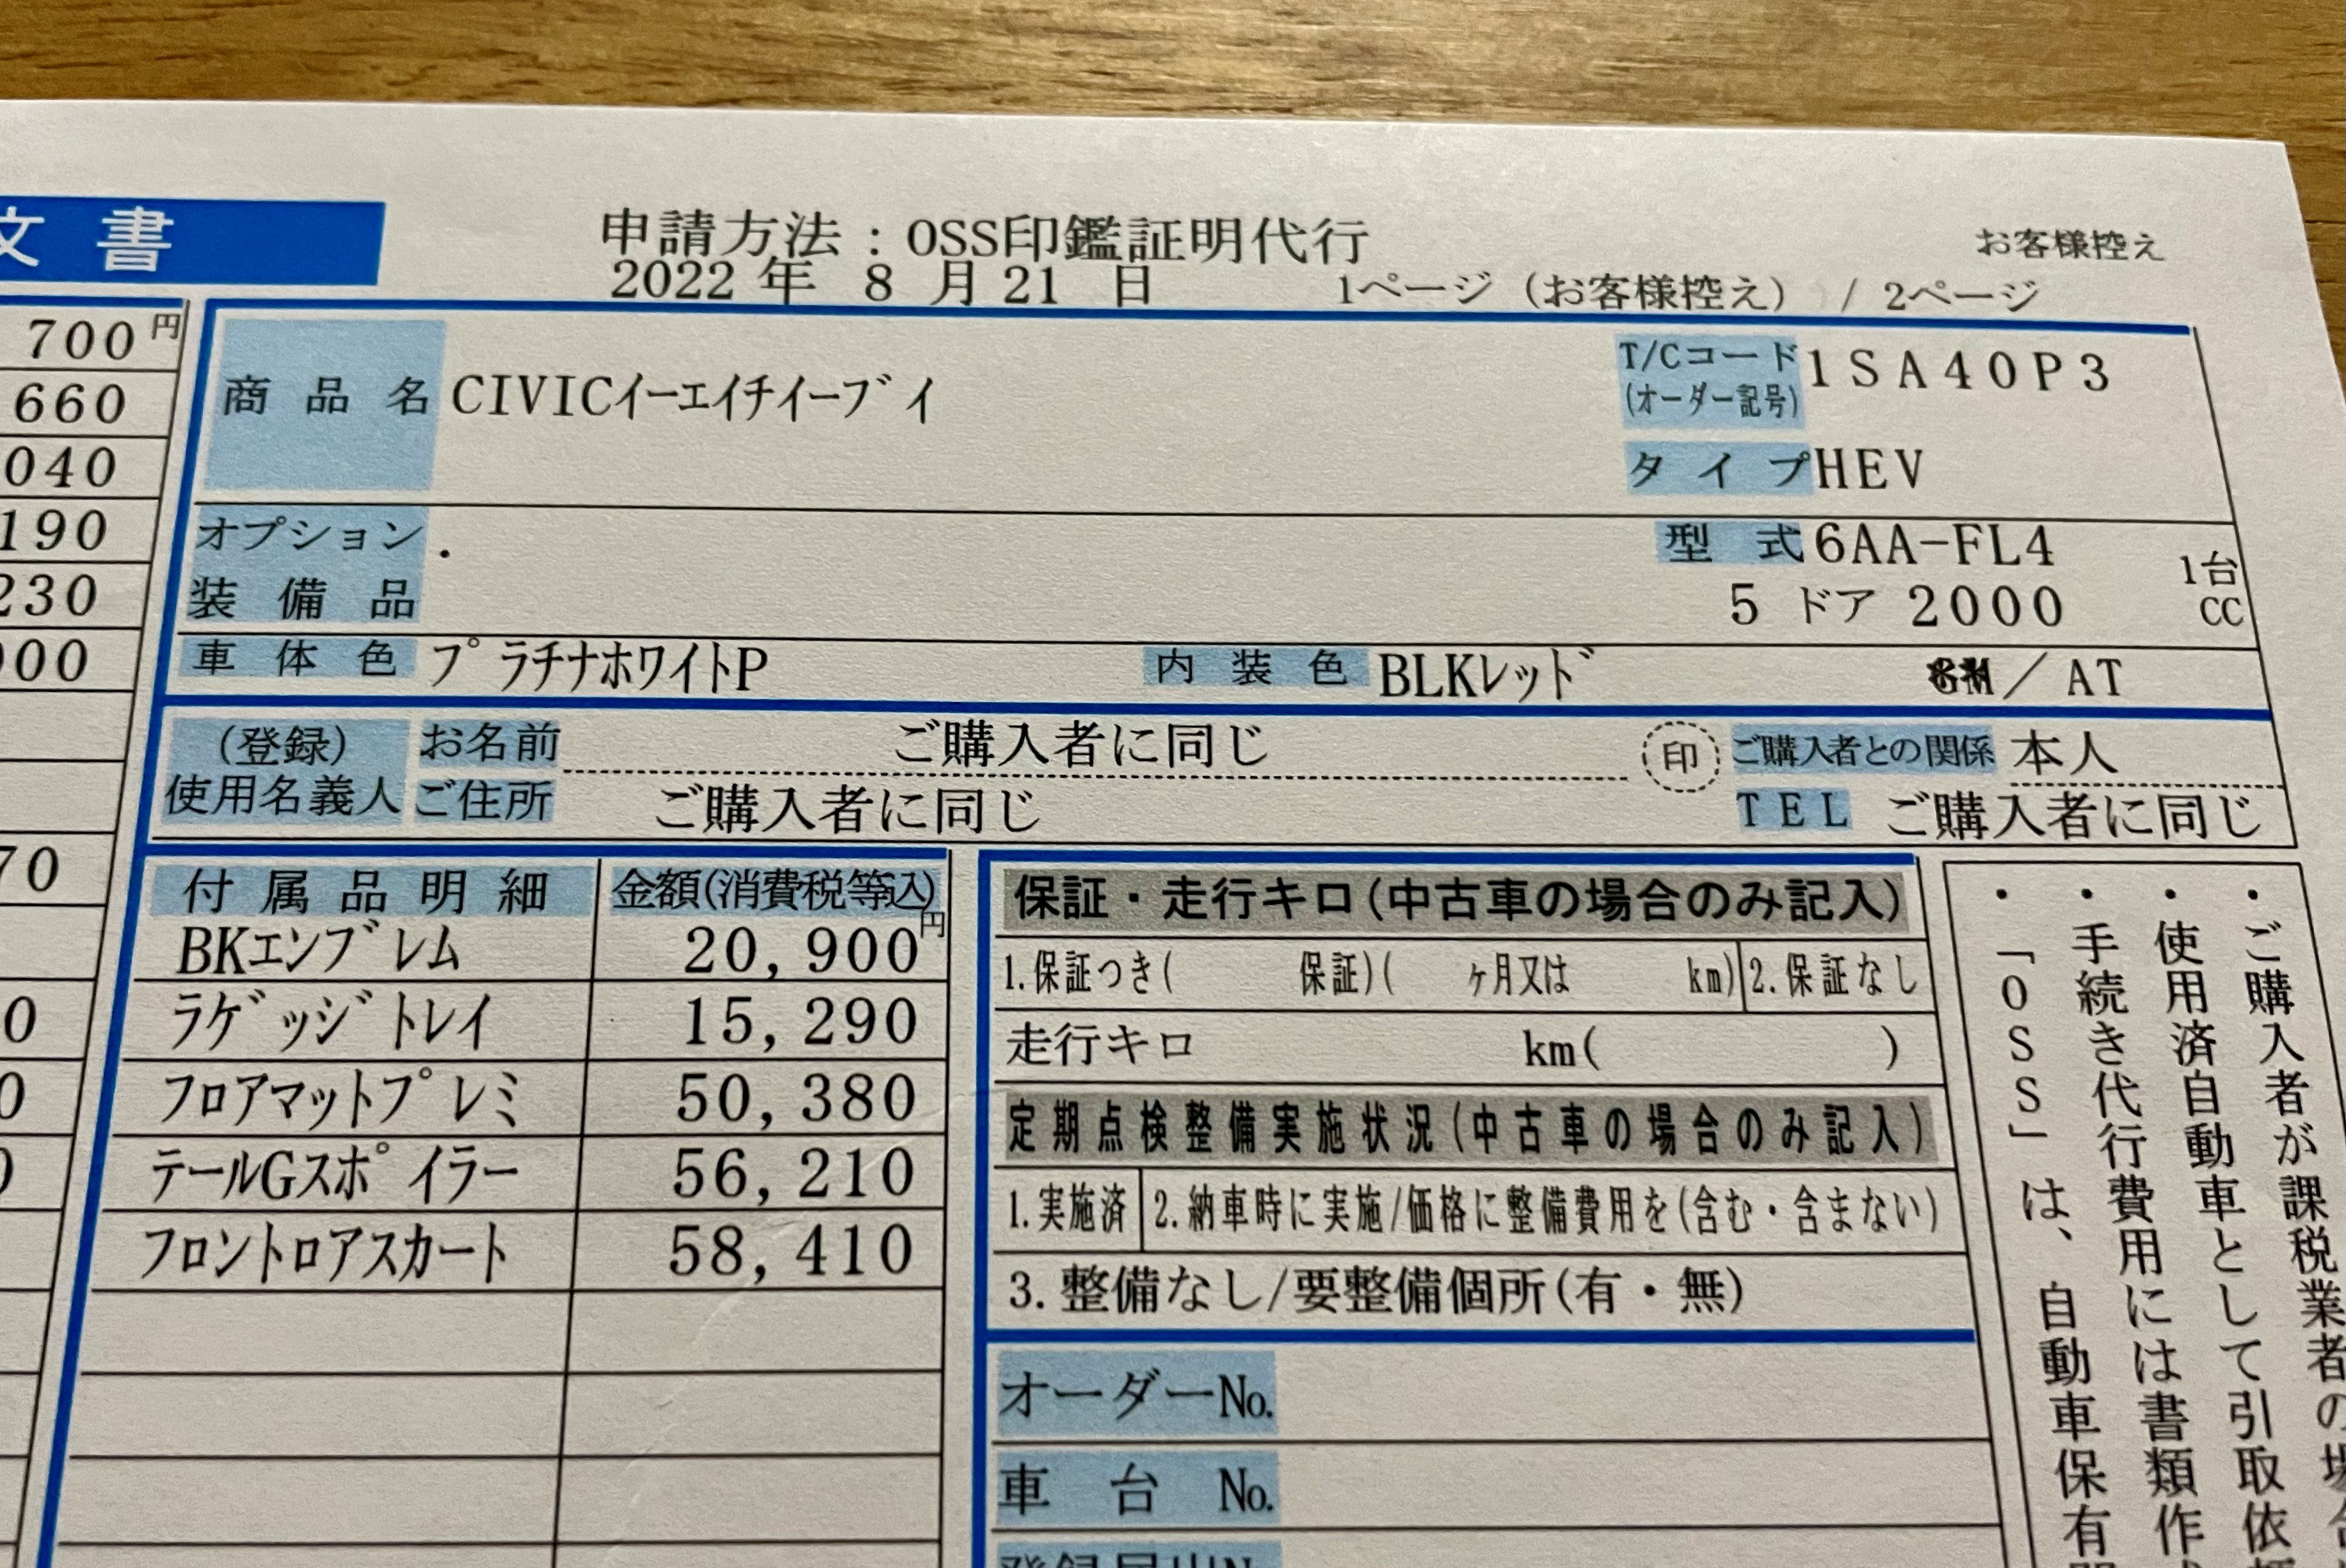 文書
申請方法：OSS印鑑証明代行
お客様控え
2022 年 8 月 21 日
1ページ（お客様控え） / 2ページ
700円
660
040
190
230
000
70
0
0
0
商品名 CIVICｲｰｴｲﾁｲｰﾌﾞｲ
T/Cコード 1SA40P3
(オーダー記号)
タイプ HEV
オプション .
装備品
型式 6AA-FL4 1台
5 ドア 2000 CC
車体色 ﾌﾟﾗﾁﾅﾎﾜｲﾄP 内装色 BLKﾚｯﾄﾞ ／AT
(登録) お名前 ご購入者に同じ 印 ご購入者との関係 本人
使用名義人 ご住所 ご購入者に同じ TEL ご購入者に同じ
付属品明細 金額(消費税等込)
BKｴﾝﾌﾞﾚﾑ 20,900円
ﾗｹﾞｯｼﾞﾄﾚｲ 15,290
ﾌﾛｱﾏｯﾄﾌﾟﾚﾐ 50,380
ﾃｰﾙGｽﾎﾟｲﾗｰ 56,210
ﾌﾛﾝﾄﾛｱｽｶｰﾄ 58,410
保証・走行キロ(中古車の場合のみ記入)
1.保証つき( 保証)( ヶ月又は km) 2.保証なし
走行キロ km( )
定期点検整備実施状況(中古車の場合のみ記入)
1.実施済 2.納車時に実施/価格に整備費用を(含む・含まない)
3.整備なし/要整備個所(有・無)
オーダーNo.
車台No.
・ご購入者が課税業者の場合
・使用済自動車として引取依
・手続き代行費用には書類作
・「OSS」は、自動車保有